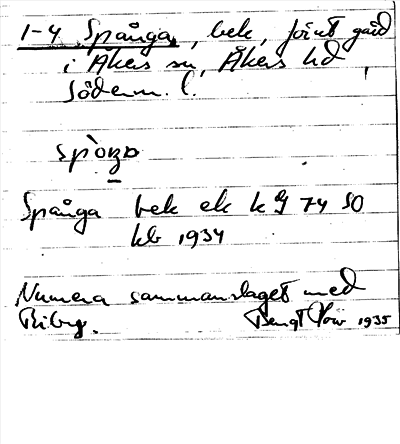 1-4 Spånga, bek, förut gård
i Åkers sn, Åkers hd,
Söderm. l.
Spånga bek ek kg 74 50
kb 1934
Numera sammanslaget med
Bengt 1935